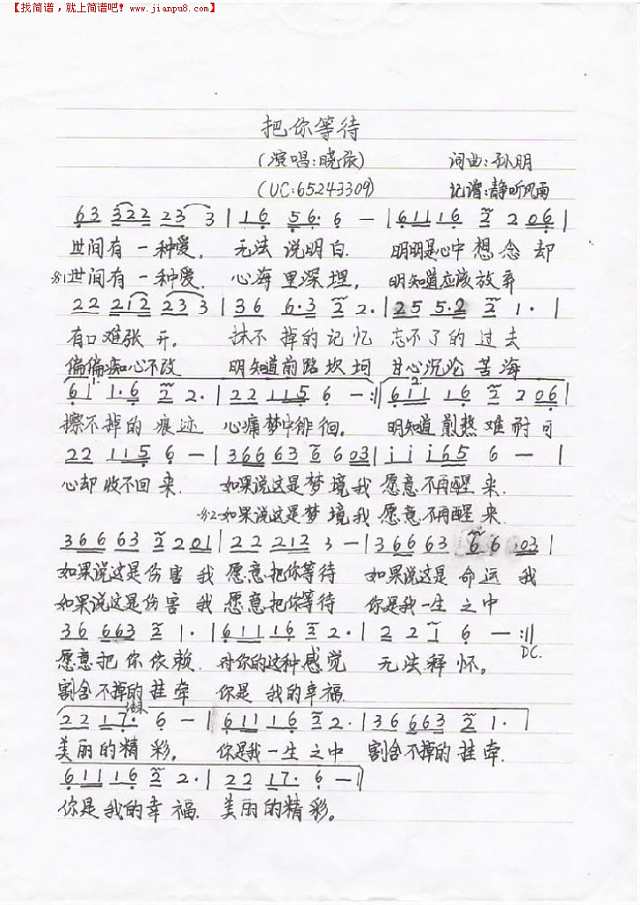 【找简谱，就上简谱吧! www.jianpu8.com】
把你等待
(演唱:晓依) 词曲:孙明
(UC:65243309) 记谱:静听风雨
63 3322 23 3 | 16 56· 6 — | 6116 2 2 06 |
世间有 一种爱, 无法 说明白. 明明是心中 想 念 却
世间有 一种爱. 心海 里深埋, 明知道应该 放弃
22 212 23 3 | 36 6·3 2 2· | 25 5·2 2 1· |
有口难张 开. 抹不 掉的 记忆 忘不了的 过去
偏偏痴心不改 明知道前路 坎坷 甘心沉沦 苦海
61 1·6 2 2· | 22 115 6 — :|| 611 16 2 2 06 |
擦不掉的 痕迹 心痛 梦中徘徊. 明知道 煎熬 难耐 可
22 115 6 — | 36663 6 6 03 | i i i65 6 — |
心却 收不回 来. 如果说这是梦境 我 愿意 不再醒 来
如果说这是梦境 我 愿意 不再醒 来.
36663 2 2 01 | 22 2212 3 — | 36663 6 6 03 |
如果说这是伤 害 我 愿意把你等待 如果说这是 命运 我
如果说这是伤 害 我 愿意把你等待 你是我一生 之中
36 663 2 1· | 61116 2 2· | 2 2 1 6 — :||
DC.
愿意 把你 依赖. 对你的这种 感觉 无法 释 怀。
割舍不掉的 挂牵 你是 我的幸福.
22 17· 6 — | 61116 2 2· | 36 663 2 1· |
美丽的精 彩, 你是我一生 之中 割舍不掉的 挂牵.
61116 2 2· | 22 17· 6 — |
你是 我的幸 福. 美丽的精彩。